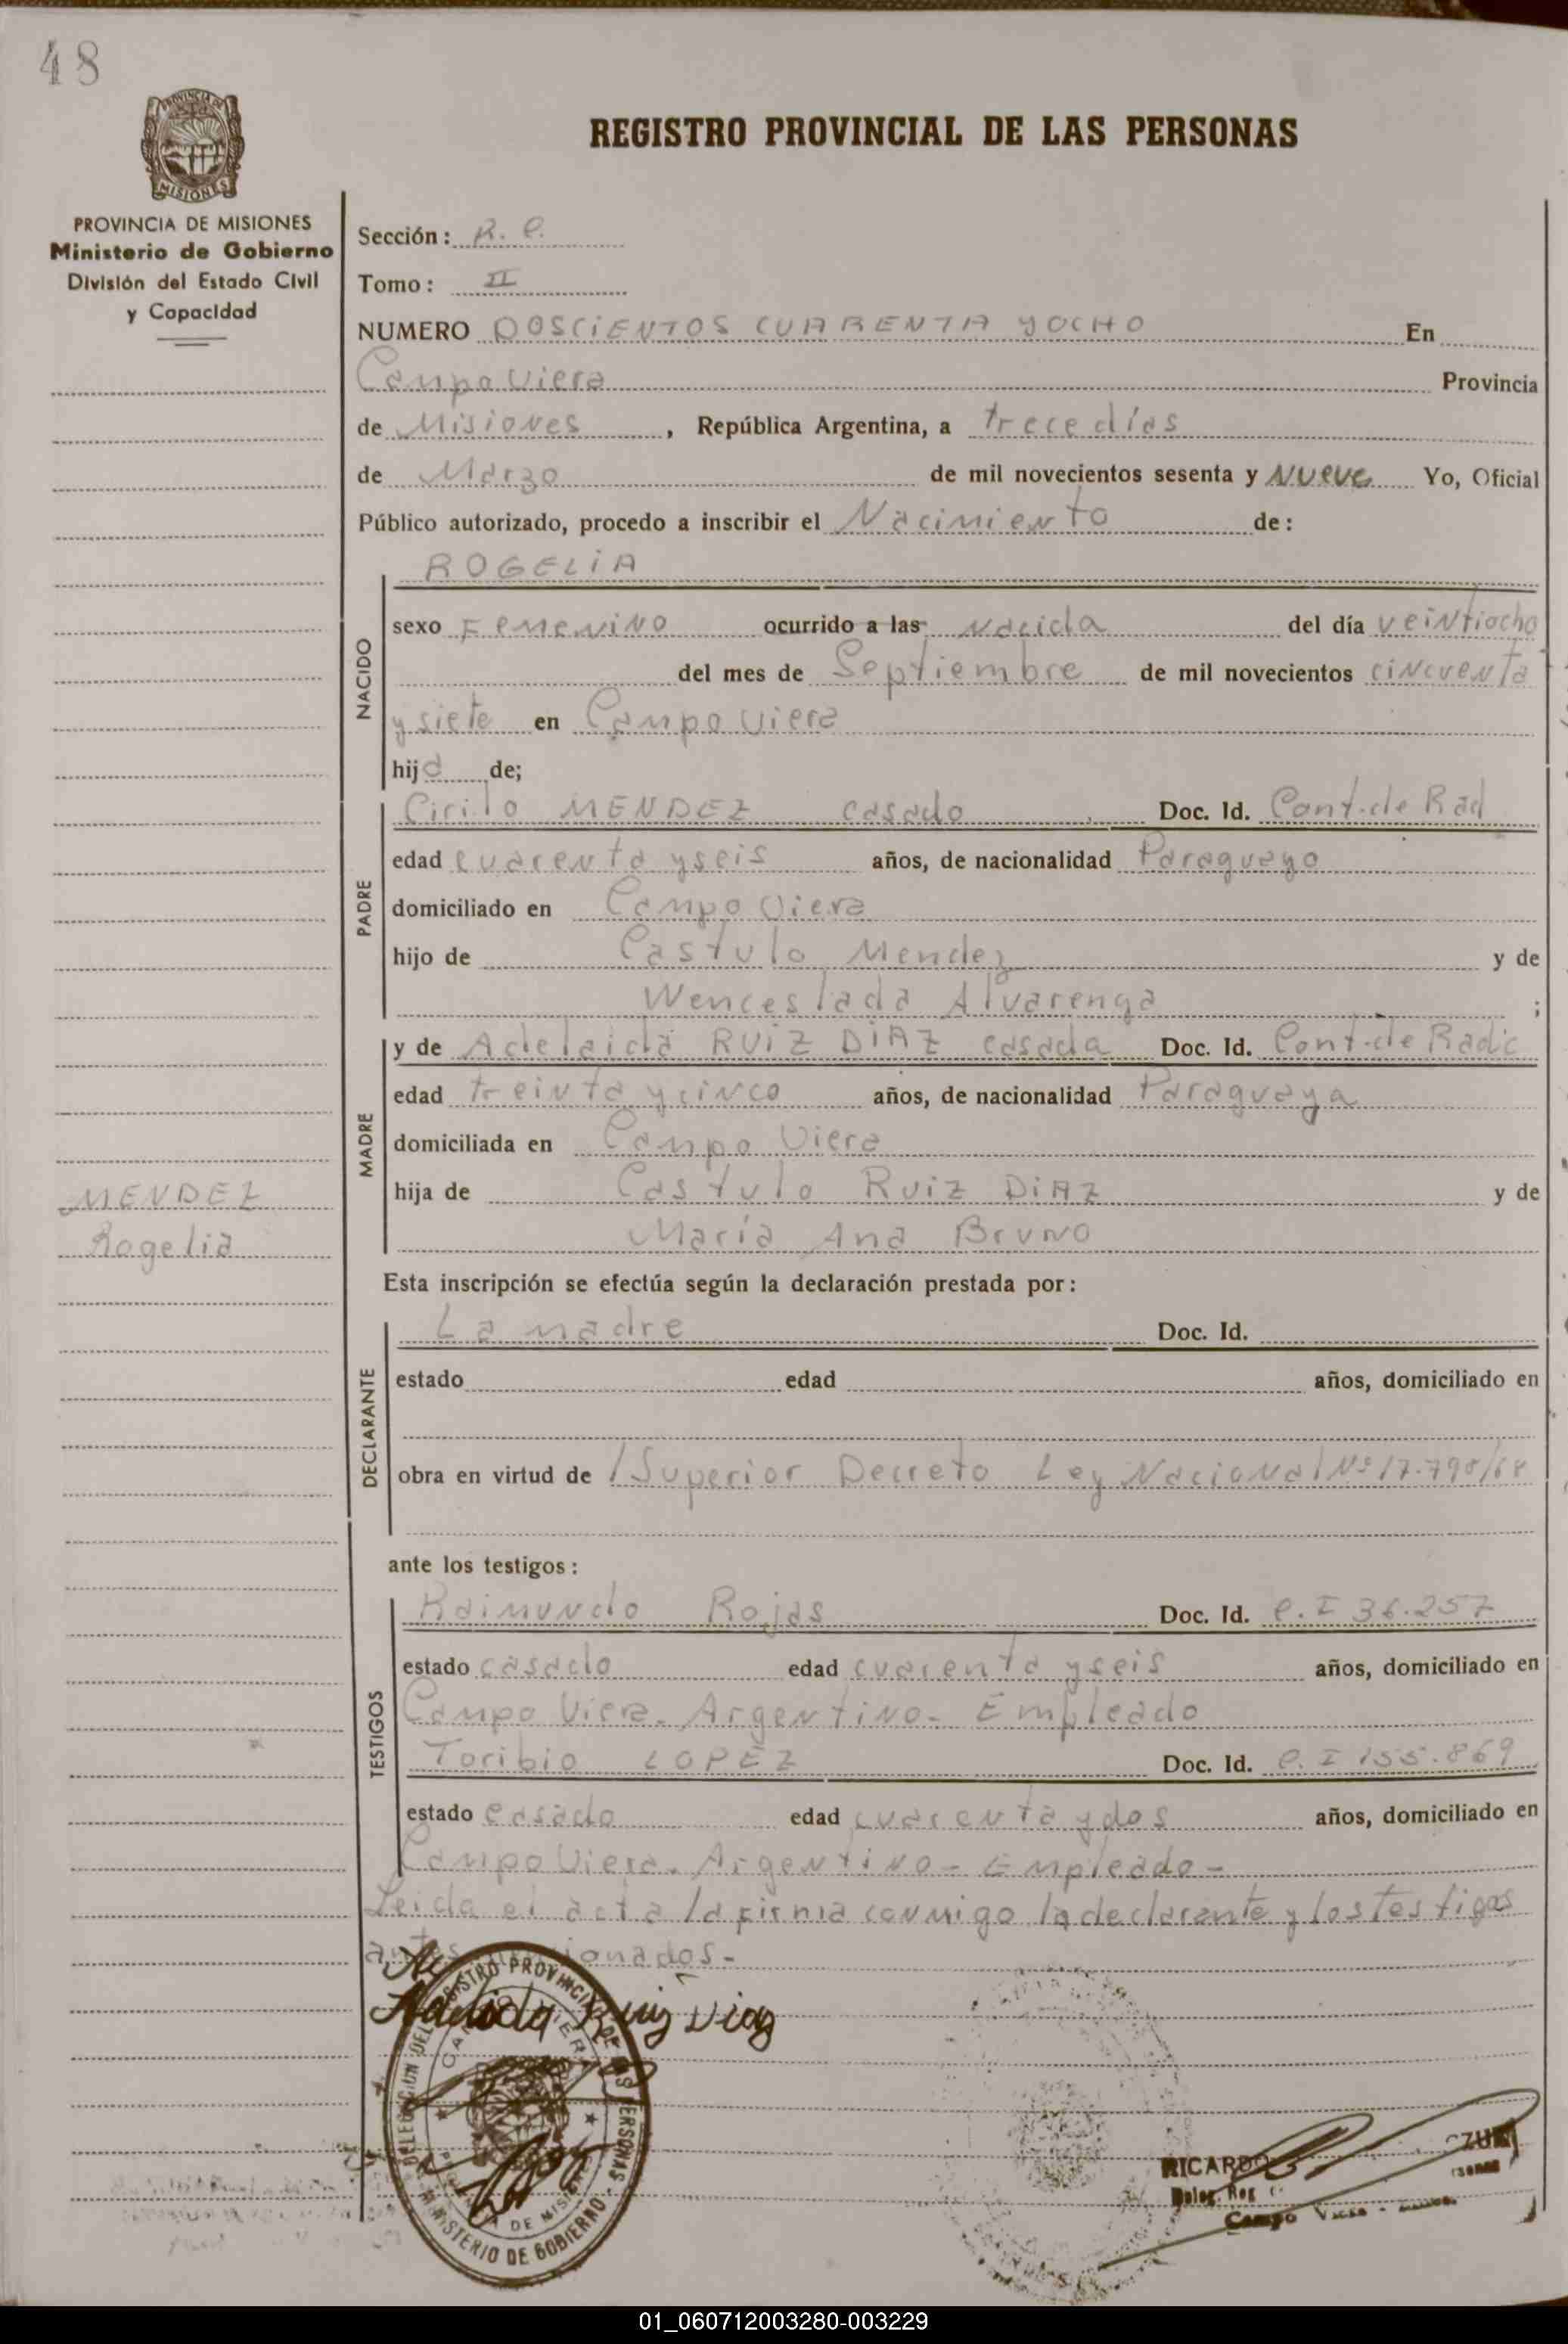 48
REGISTRO PROVINCIAL DE LAS PERSONAS
PROVINCIA DE MISIONES
MISIONES
PROVINCIA DE MISIONES
Ministerio de Gobierno
División del Estado Civil
y Capacidad
Sección: R. P.
Tomo: II
NUMERO DOSCIENTOS CUARENTA y OCHO En
Campo Viera Provincia
de Misiones, República Argentina, a trece días
de Marzo de mil novecientos sesenta y NUEVE Yo, Oficial
Público autorizado, procedo a inscribir el Nacimiento de:
NACIDO
ROGELIA
sexo Femenino ocurrido a las Nacida del día veintiocho
del mes de Septiembre de mil novecientos cincuenta
y siete en Campo Viera
hija de;
PADRE
Cirilo MENDEZ casado Doc. Id. Cont. de Rad
edad cuarenta y seis años, de nacionalidad Paraguayo
domiciliado en Campo Viera
hijo de Castulo Mendez y de
Wenceslada Alvarenga ;
MADRE
y de Adelaida RUIZ DIAZ casada Doc. Id. Cont. de Radic
edad treinta y cinco años, de nacionalidad Paraguaya
domiciliada en Campo Viera
hija de Castulo RUIZ DIAZ y de
María Ana Bruno
MENDEZ
Rogelia
Esta inscripción se efectúa según la declaración prestada por:
DECLARANTE
La madre Doc. Id.
estado edad años, domiciliado en
obra en virtud de /Superior Decreto Ley Nacional Nº 17.798/68
ante los testigos:
TESTIGOS
Raimundo Rojas Doc. Id. C. I 36.257
estado casado edad cuarenta y seis años, domiciliado en
Campo Viera. Argentino- Empleado
Toribio LOPEZ Doc. Id. C. I 155.869
estado casado edad cuarenta y dos años, domiciliado en
Campo Viera. Argentino- Empleado-
Leida el acta la firma conmigo la declarante y los testigos
antes
Ruiz Diaz
DELEGACION DEL REGISTRO PROVINCIAL DE LAS PERSONAS
CAMPO VIERA
MINISTERIO DE GOBIERNO
RICARDO
Deleg. Reg
Campo Viera
01_060712003280-003229